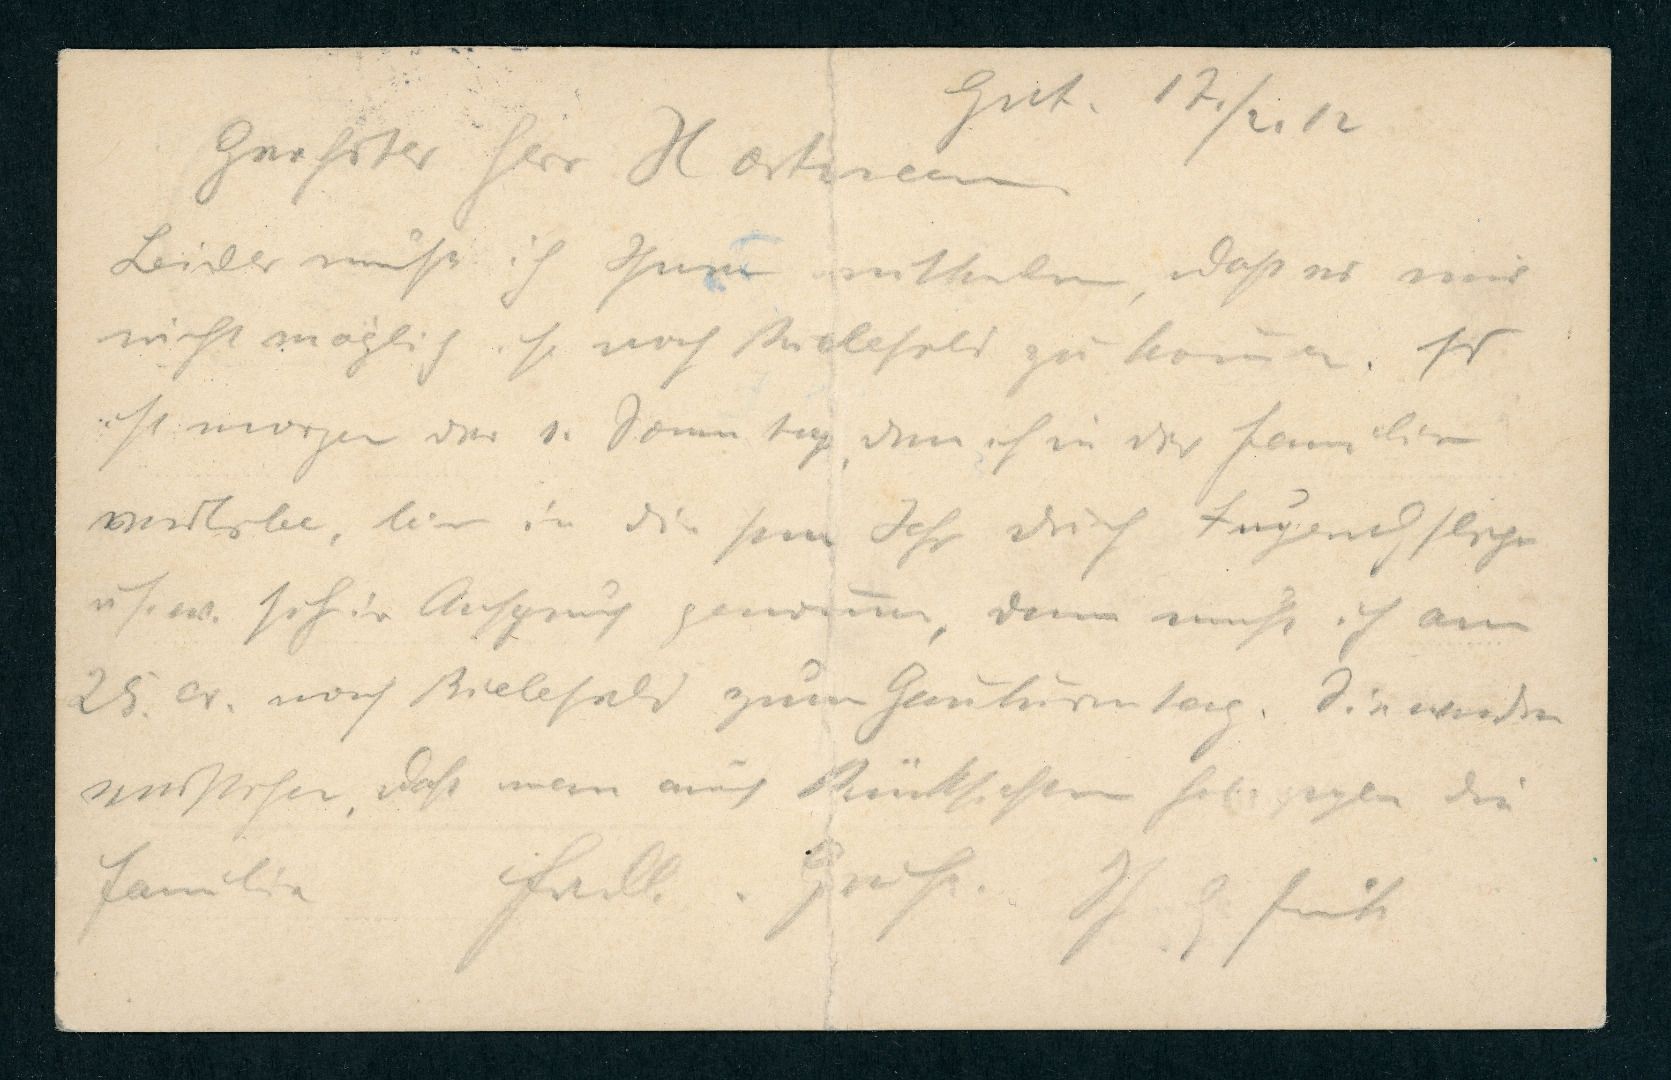 Gut. 17./2.12
Geehrter Herr Hartmann
Leider muß ich Ihnen mittheilen, daß es mir
nicht möglich ist nach Bielefeld zu kommen. Es
ist morgen der 1. Sonntag, den ich in der Familie
verlebe, bin in diesem Jahr durch Jugendpflege
u.s.w. sehr in Anspruch genommen, dann muß ich am
25. cr. nach Bielefeld zum Gauturntag. Sie werden
verstehen, daß man auch Rücksichten hat gegen die
Familie Frdl. Gruß. Ihr